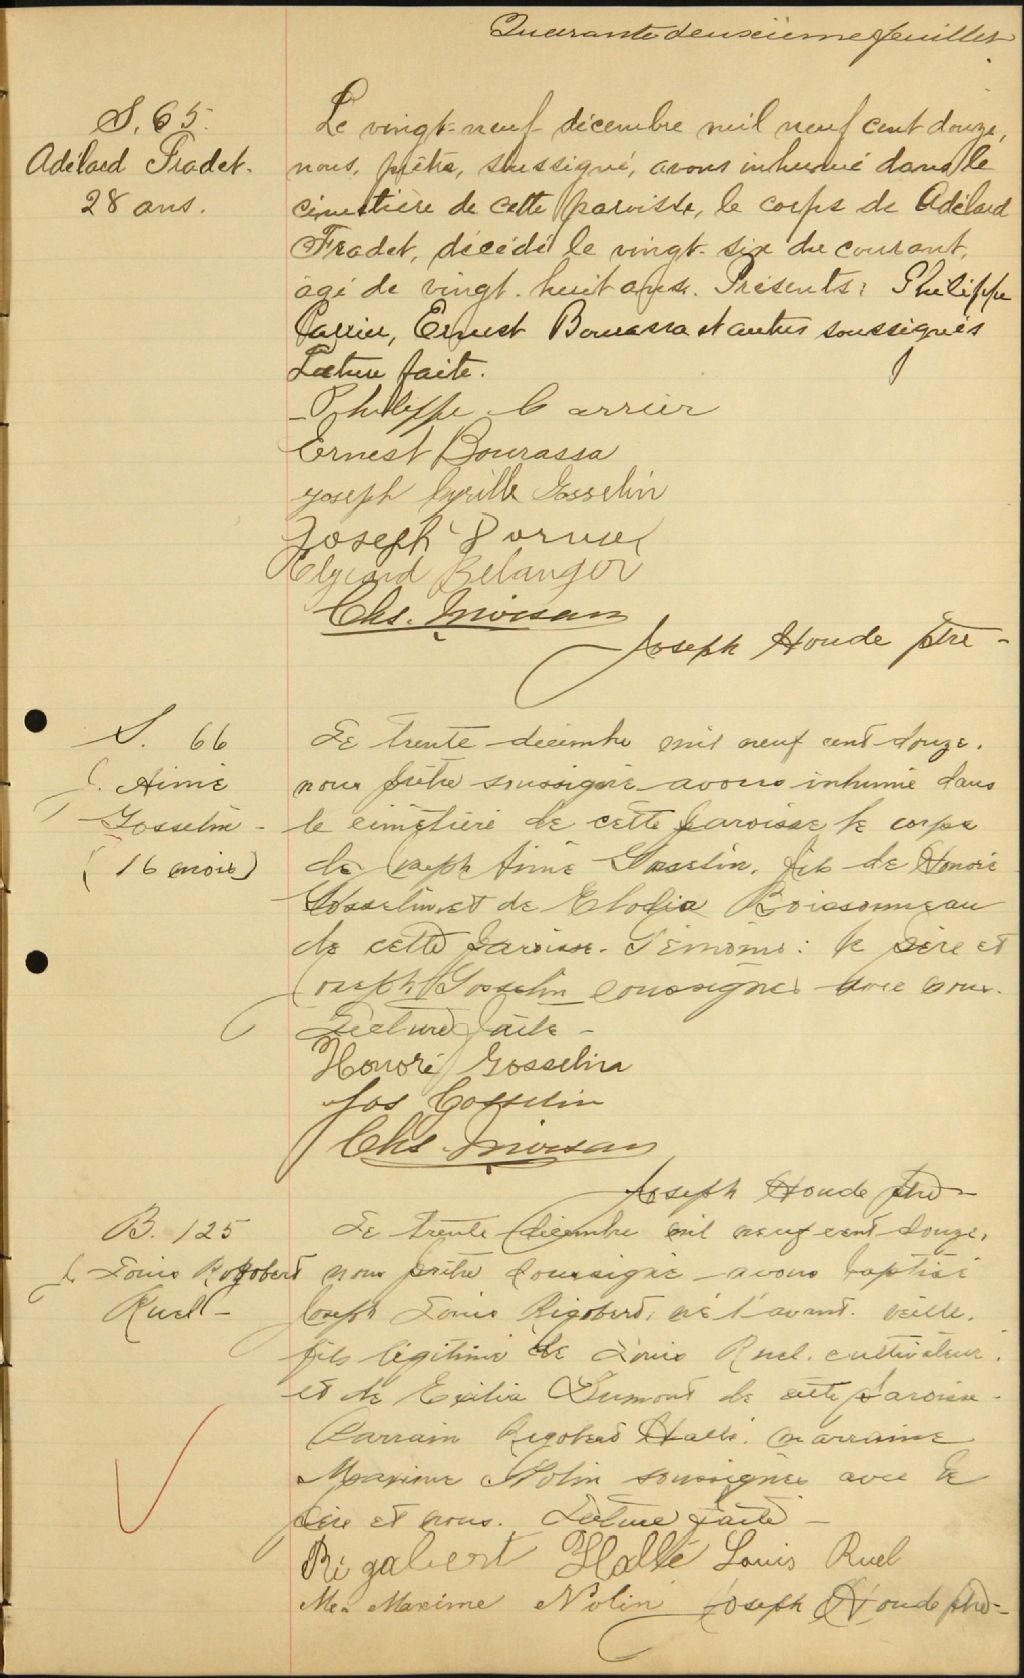 Quarante deuxième feuillet
S. 65.
Adélard Fradet.
28 ans.
Le vingt-neuf décembre mil neuf cent douze,
nous, prêtre, soussigné, avons inhumé dans le
cimetière de cette paroisse, le corps de Adélard
Fradet, décédé le vingt-six du courant,
âgé de vingt-huit ans. Présents: Philippe
Carrier, Ernest Bourassa et autres soussignés
Lecture faite.
Philippe Carrier
Ernest Bourassa
Joseph Cyrille Gosselin
Joseph
Elzéard Belanger
Chs. Moisan
Joseph Houde ptre
S. 66
J. Aimé
Gosselin
(16 mois)
Le trente décembre mil neuf cent douze,
nous prêtre soussigné avons inhumé dans
le cimetière de cette paroisse le corps
de Joseph Aimé Gosselin, fils de Honoré
Gosselin et de Elodia Boissonneau
de cette paroisse. Témoins: le père et
Joseph Gosselin soussignés avec nous.
Lecture faite
Honoré Gosselin
Jos Gosselin
Chs. Moisan
Joseph Houde ptre
B. 125
J. Louis Rigobert
Ruel
Le trente décembre mil neuf cent douze,
nous prêtre soussigné avons baptisé
Joseph Louis Rigobert, né l'avant-veille,
fils légitime de Louis Ruel, cultivateur,
et de Dumont de cette paroisse.
Parrain Rigobert Hallé, marraine
Maxime Nolin soussignés avec le
père et nous. Lecture faite
Rigabert Hallé Louis Ruel
Me. Maxime Nolin Joseph Houde ptre